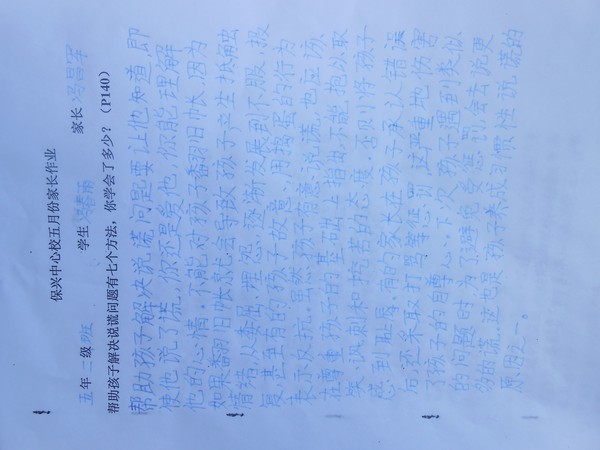 保兴中心校五月份家长作业
五年二级班 学生 家长
帮助孩子解决说谎问题有七个方法，你学会了多少？（P140）
帮助孩子解决说谎问题要让他知道,即
使他说了谎,你还是爱他,你能理解
他的心情.不能对孩子翻旧帐.因为
如果翻旧帐就会导致孩子产生抵触
情绪从委屈.埋怨.逐渐发展到不服.报
复.甚至有的孩子故意,用捣蛋的行为
表示反抗.虽然孩子有意说谎,也应该
在尊重孩子的基础上指出不能抱以取
笑.讽刺和挖苦的态度.否则将孩子
感到耻辱.有的家长在孩子承认错误
后还采取打骂等惩罚.这严重地伤害
了孩子的自尊心,下次孩子遇到类似
的问题时为了避免受惩罚,会去说更
多的谎.这也是孩子养成习惯性说谎的
原因之一.